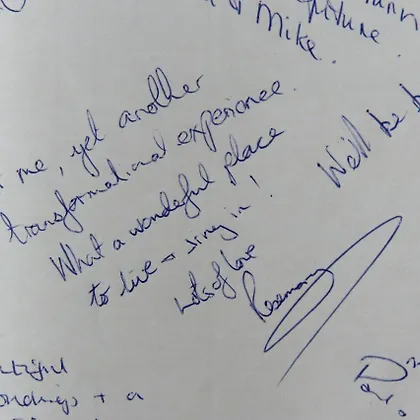 Mike.
me, yet another
transformational experience.
What a wonderful place
to live → sing in!
Lots of love
Rosemary
We'll be b
+ a